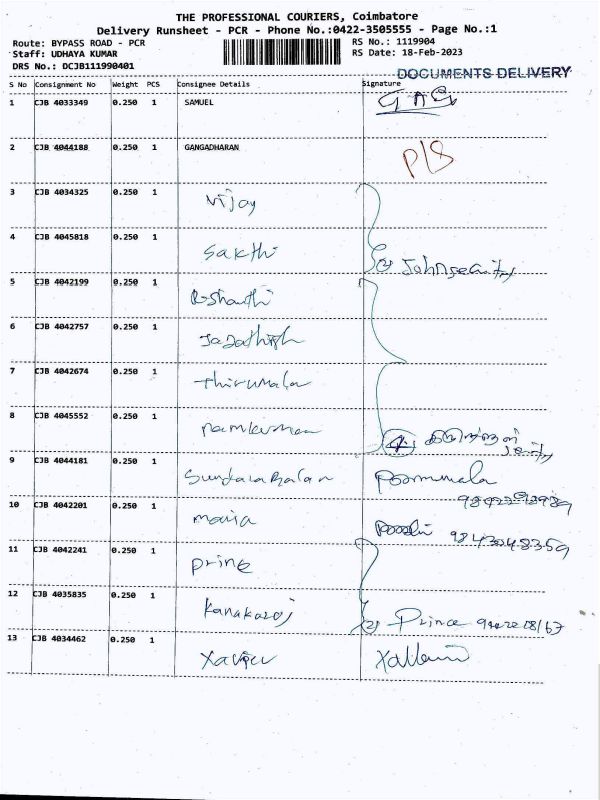 THE PROFESSIONAL COURIERS, Coimbatore
Delivery Runsheet - PCR - Phone No.:0422-3505555 - Page No.:1
Route: BYPASS ROAD - PCR
RS No.: 1119904
Staff: UDHAYA KUMAR
RS Date: 18-Feb-2023
DRS No.: DCJB111990401
DOCUMENTS DELIVERY
S No Consignment No Weight PCS Consignee Details Signature
1 CJB 4033349 0.250 1 SAMUEL
2 CJB 4044188 0.250 1 GANGADHARAN P/S
3 CJB 4034325 0.250 1 Vijay
4 CJB 4045818 0.250 1 Sakthi (2) John security
5 CJB 4042199 0.250 1
6 CJB 4042757 0.250 1
7 CJB 4042674 0.250 1 Thirumala
8 CJB 4045552 0.250 1 Ramkumar (4)
9 CJB 4044181 0.250 1 Sundarabalan
10 CJB 4042201 0.250 1 maria 9843048359
11 CJB 4042241 0.250 1 prine
12 CJB 4035835 0.250 1 Kanakaraj (2) Prince
13 CJB 4034462 0.250 1 Xavier